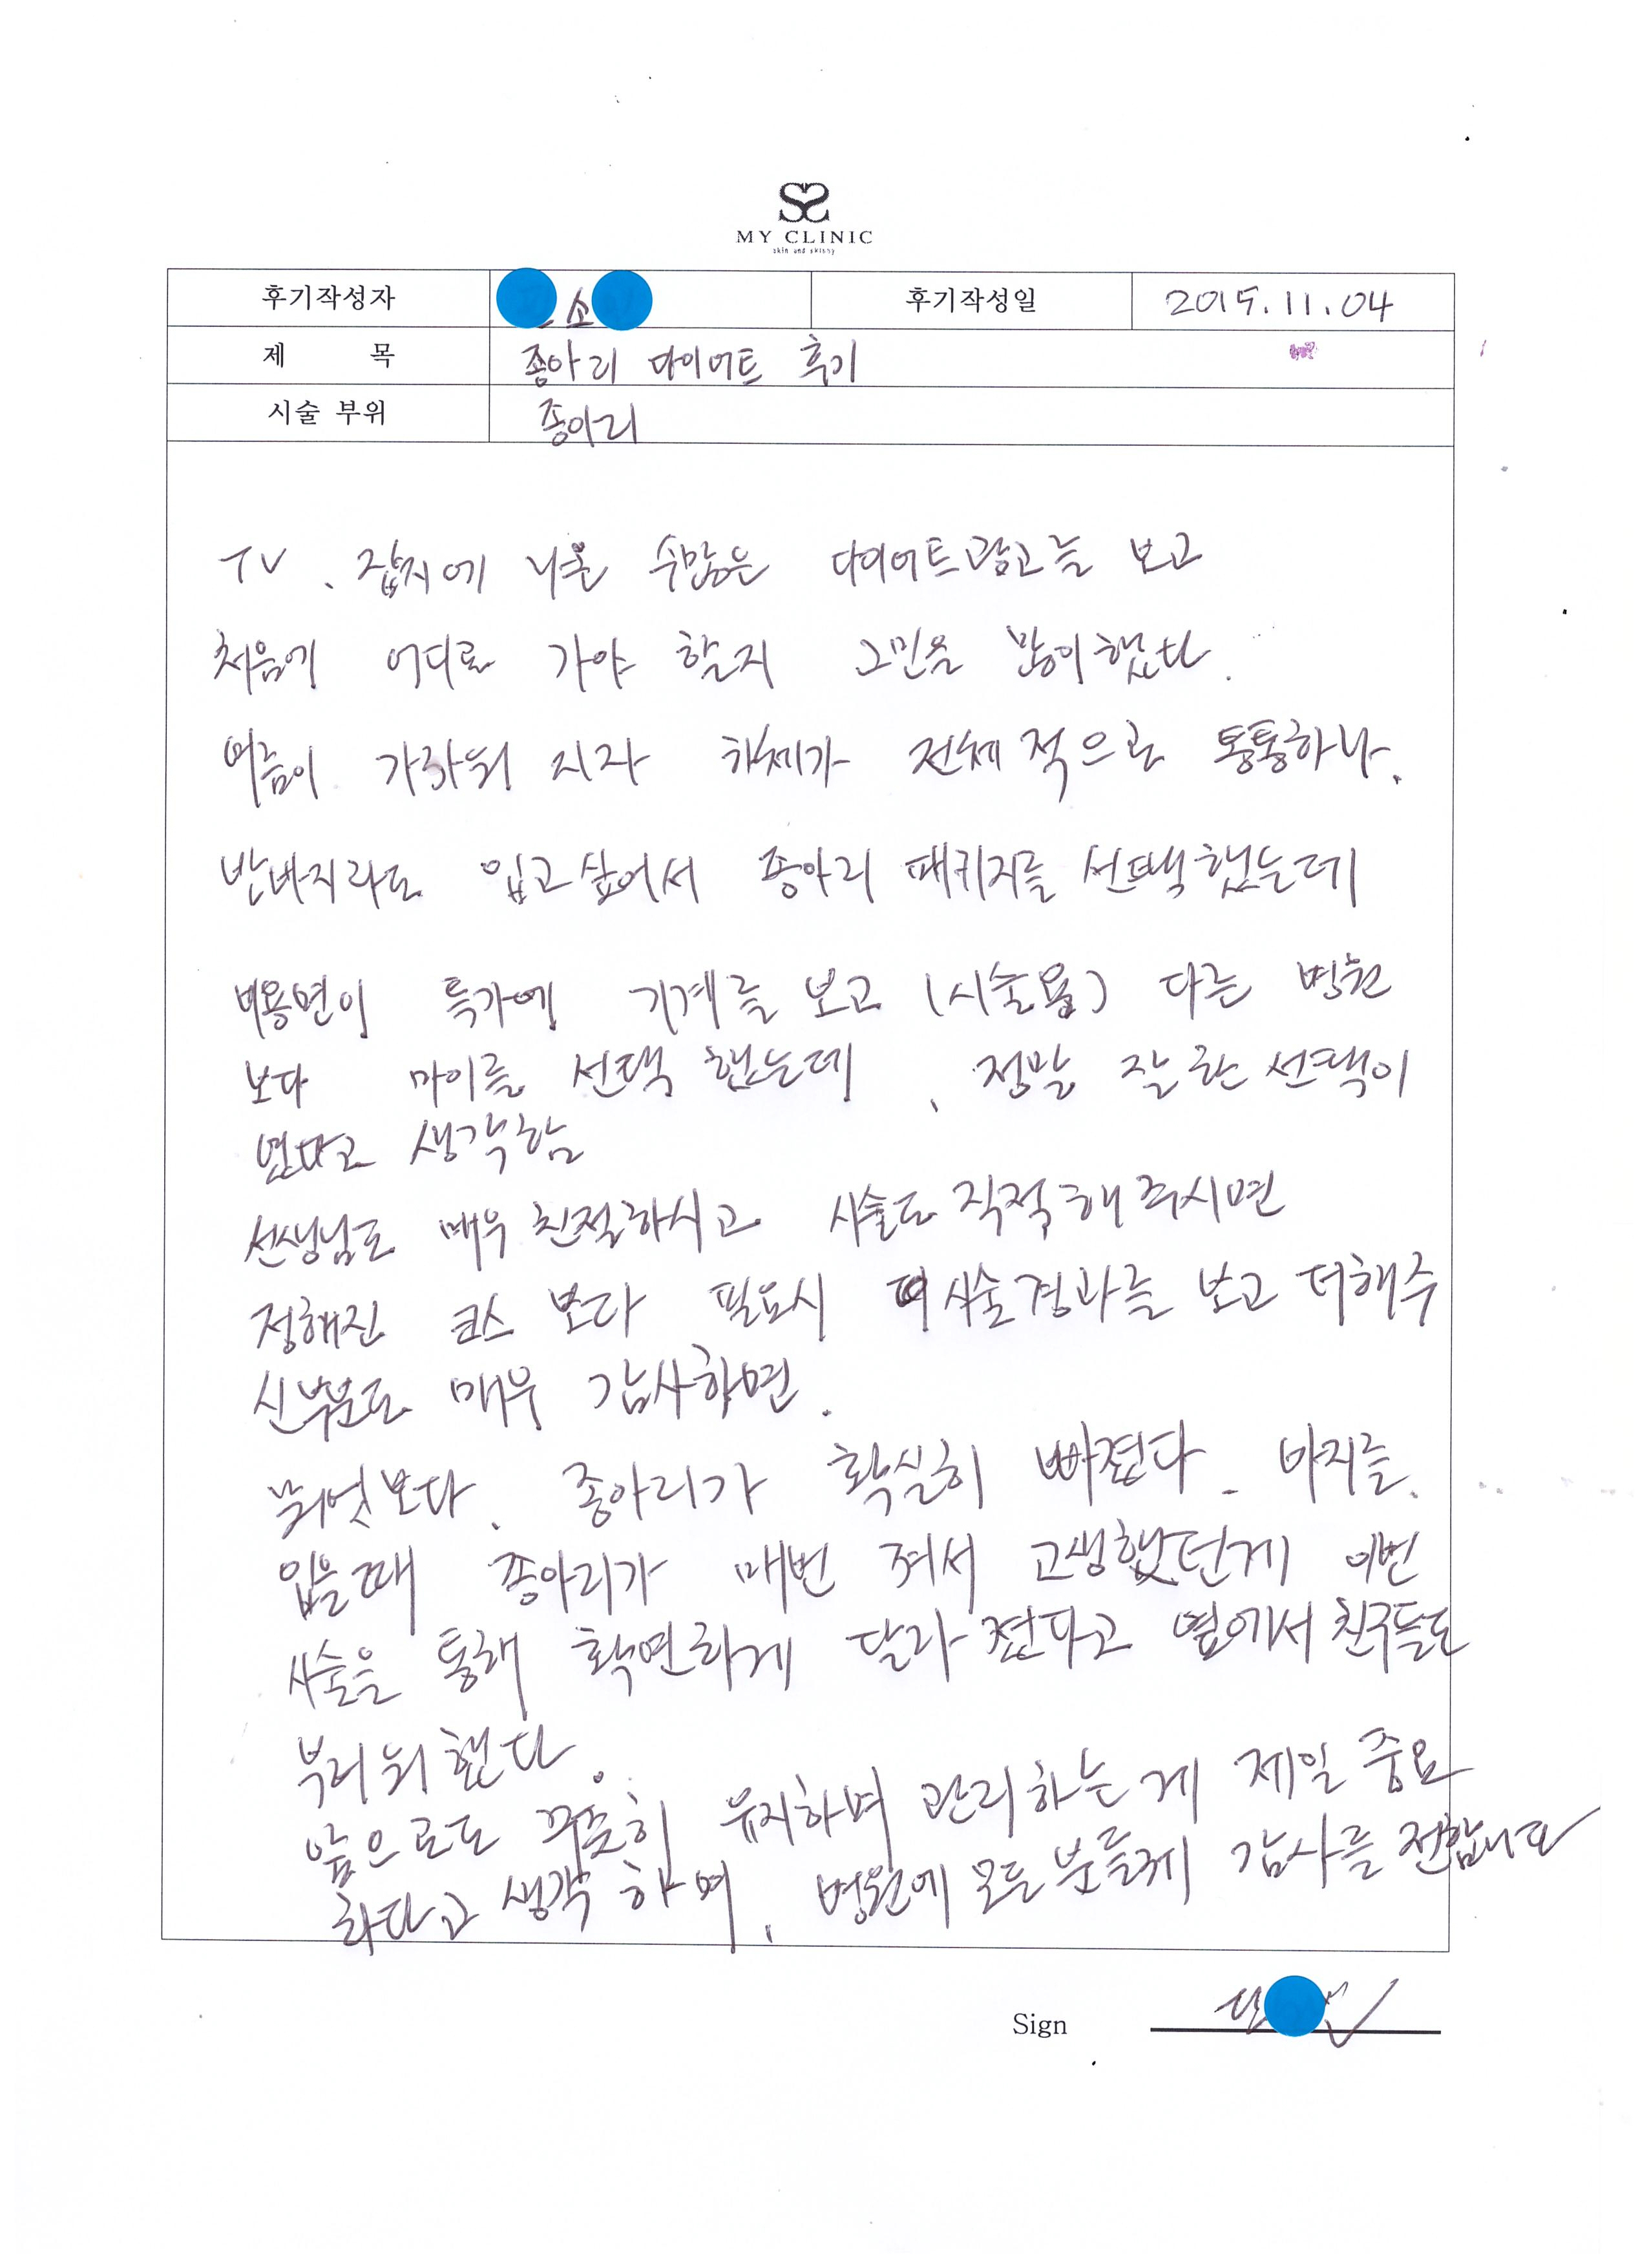 MY CLINIC
skin and skinny
후기작성자 소 후기작성일 2015.11.04
제 목 종아리 다이어트 후기
시술 부위 종아리
TV, 잡지에 나온 수많은 다이어트광고를 보고
처음에 어디로 가야 할지 고민을 많이했다.
여름이 가까워 지자 하체가 전체적으로 통통하나,
반바지라도 입고싶어서 종아리 패키지를 선택했는데
비용면이 특가에 기계를 보고 (시술용) 다른 병원
보다 마이를 선택 했는데, 정말 잘한 선택이
였다고 생각함
선생님도 매우 친절하시고 시술도 직접해주시면
정해진 코스 보다 필요시 시술경과를 보고 더해주
신부분도 매우 감사하면.
뭐엇보다, 종아리가 확실히 빠졌다. 바지를
입을때 종아리가 매번 껴서 고생했던게 이번
시술을 통해 확연하게 달라졌다고 옆에서 친구들도
부러워했다.
앞으로도 꾸준히 유지하며 관리하는게 제일 중요
하다고 생각하며, 병원에 모든 분들께 감사를 전합니다
Sign